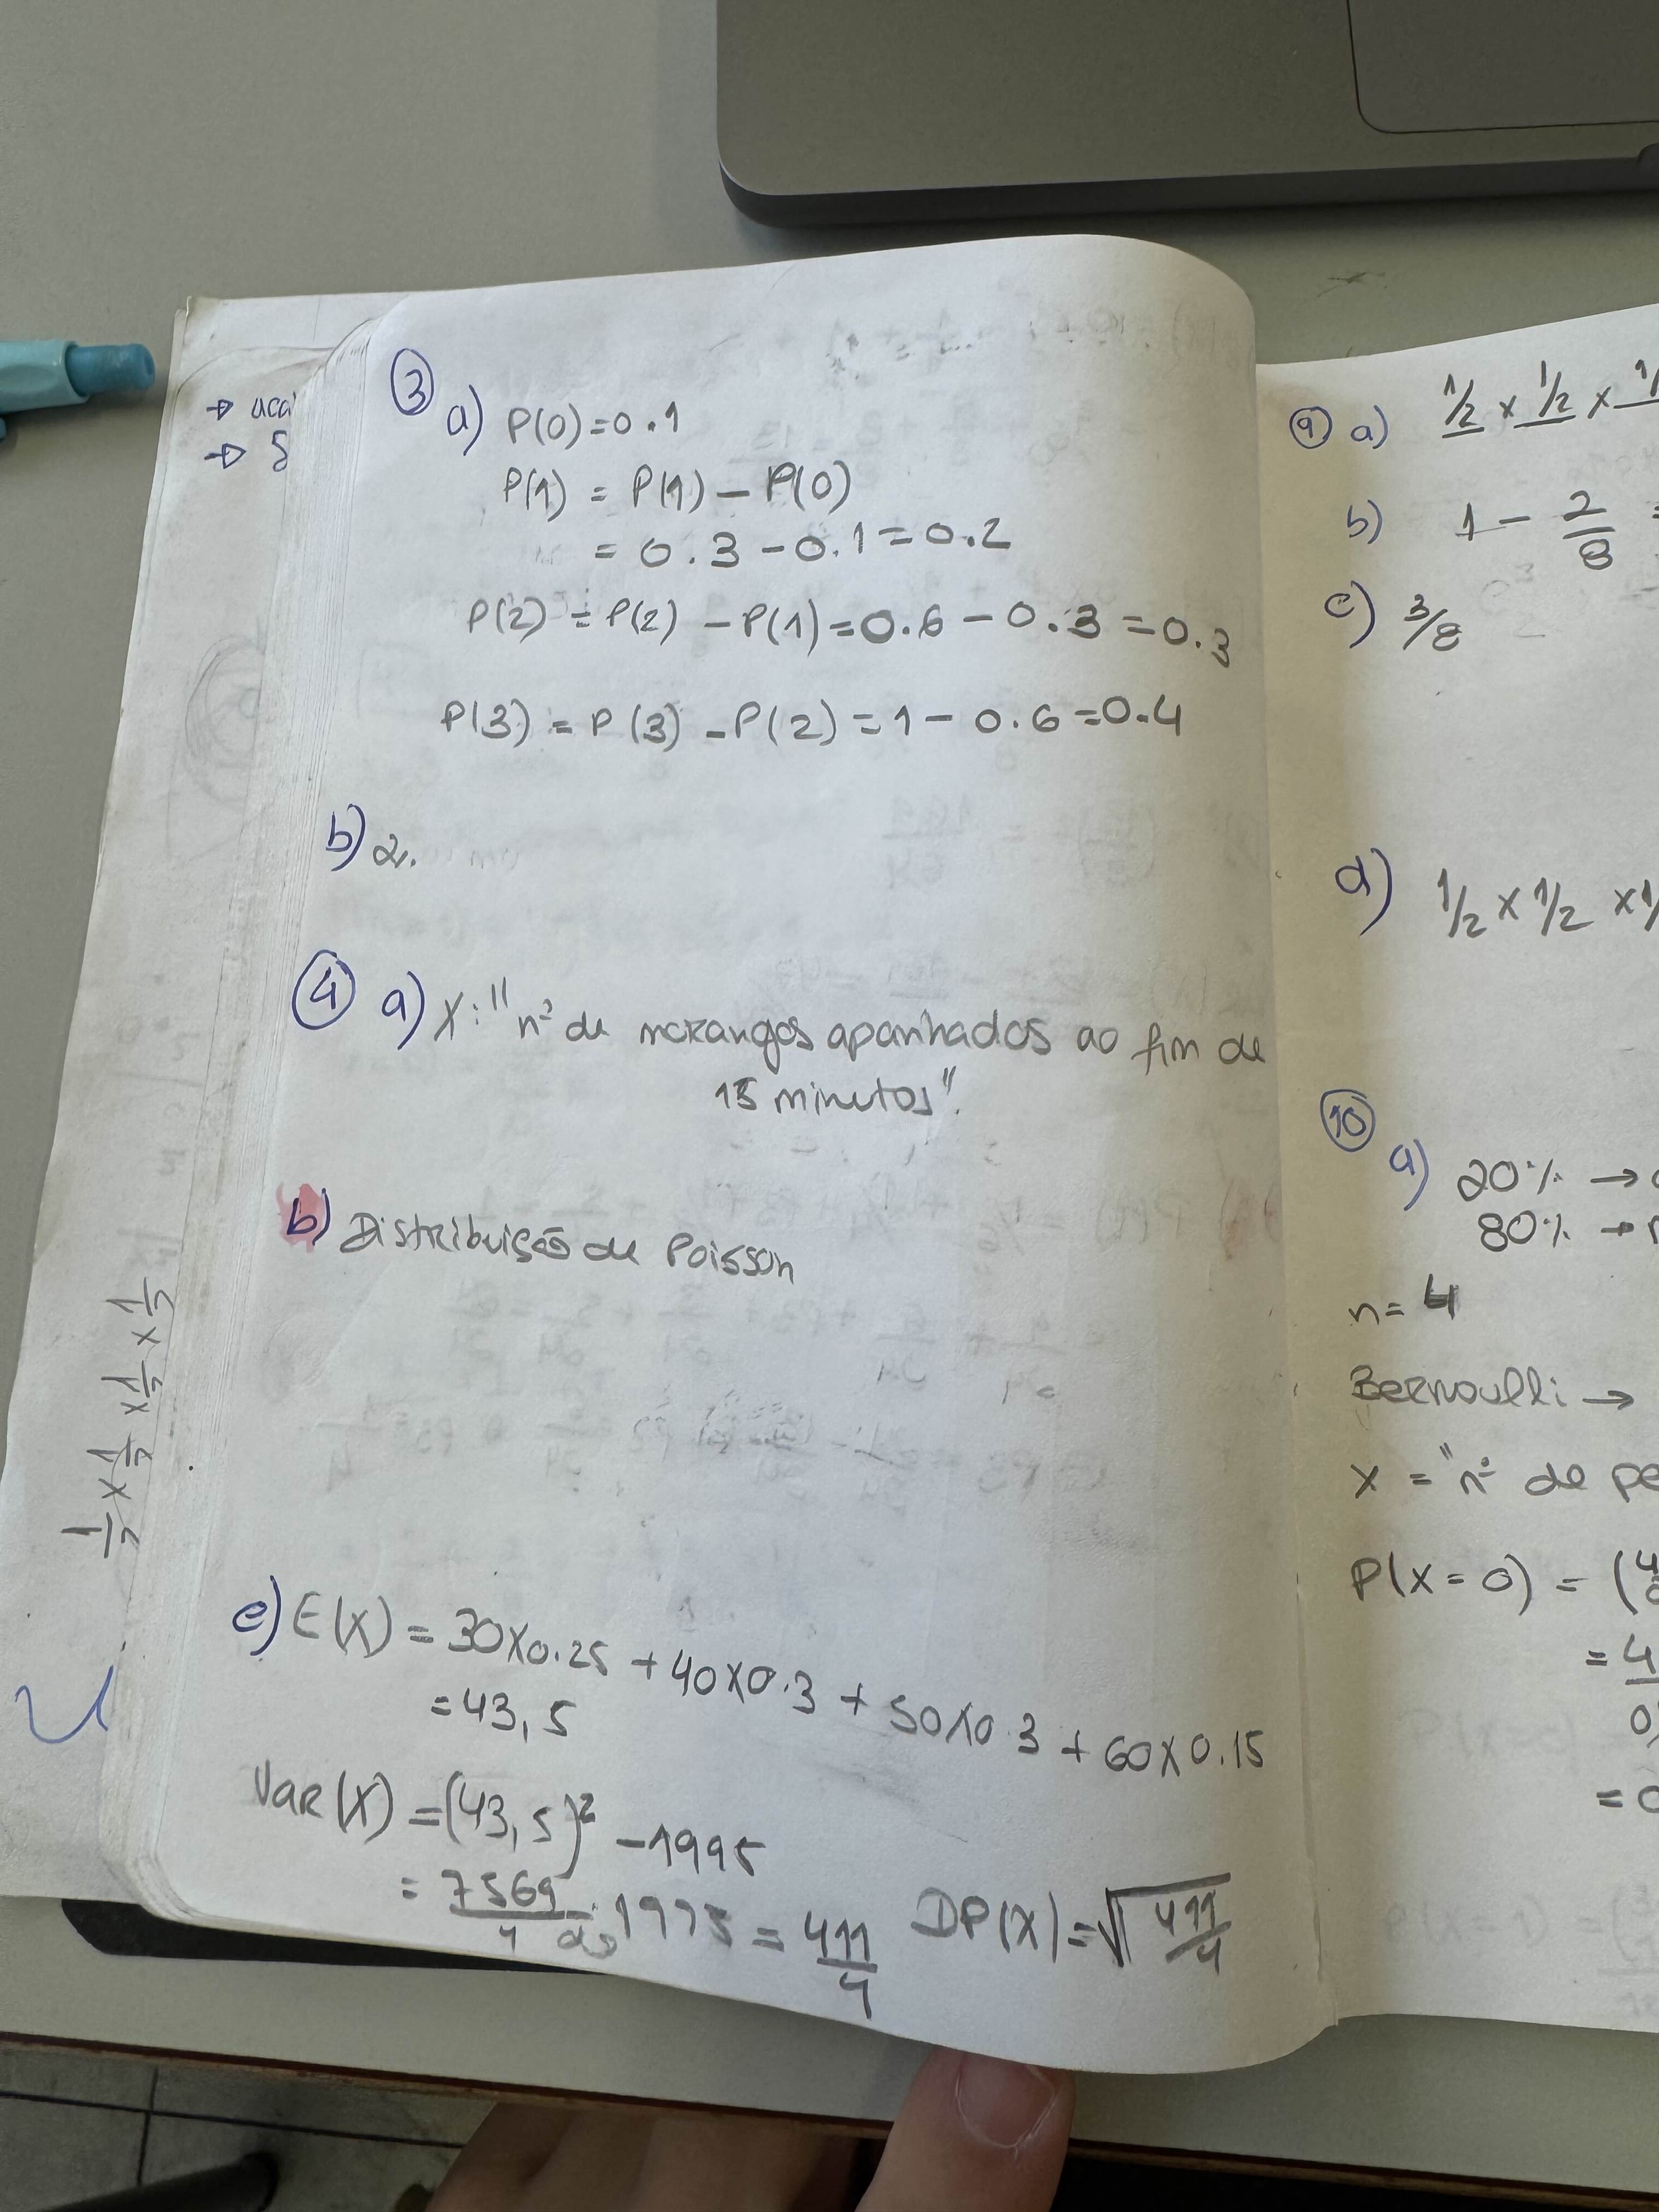 → uca
→ S
③ a) P(0)=0.1
P(1) = P(1) - P(0)
= 0.3 - 0.1 = 0.2
P(2) = P(2) - P(1) = 0.6 - 0.3 = 0.3
P(3) = P(3) - P(2) = 1 - 0.6 = 0.4
b) 2.
④ a) X: "nº de morangos apanhados ao fim de
15 minutos".
b) Distribuição de Poisson
c) E(X) = 30x0.25 + 40x0.3 + 50x0.3 + 60x0.15
= 43,5
Var(X) = (43,5)² - 1995
= 7569/4 1995 = 411/4 DP(X) = √411/4
1/2 x 1/2 x 1/2 x 1/2
⑨ a) 1/2 x 1/2 x 1/
b) 1 - 2/8 =
c) 3/8
d) 1/2 x 1/2 x 1/
⑩
a) 20% →
80% →
n = 4
Bernoulli →
X = "nº de pe
P(X=0) = (4 0
= 4
0
= 0